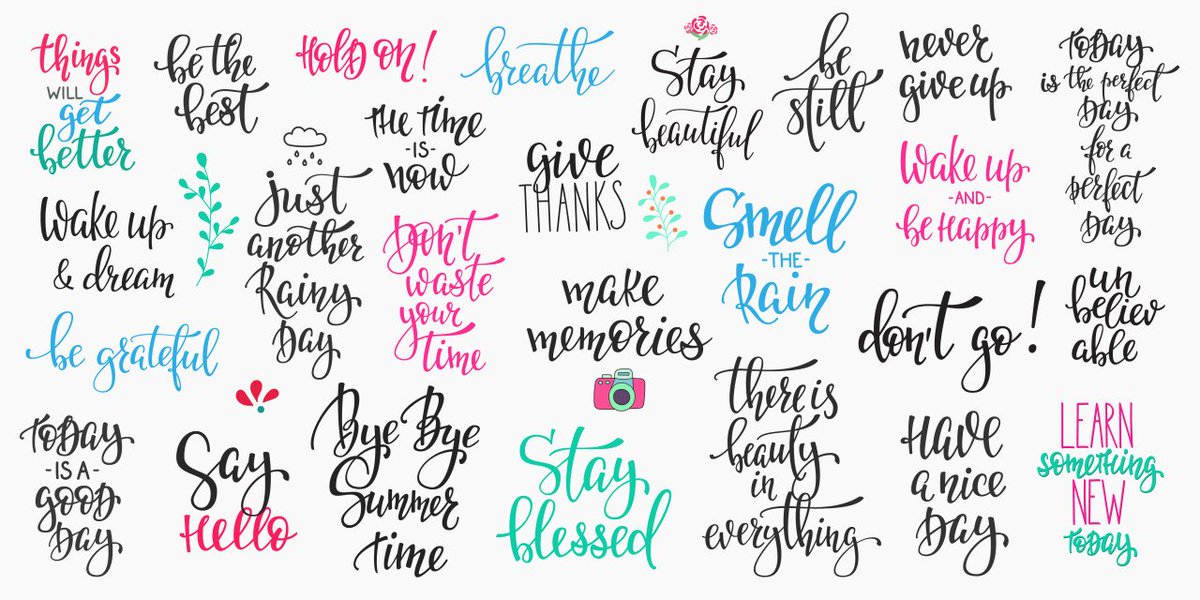 things
WILL
get
better
be the
best
Hold on!
breathe
Stay
beautiful
be
still
never
give up
Today
is the perfect
Day
for a
perfect
Day
the time
-IS-
now
give
THANKS
Wake up
-AND-
be Happy
Wake up
& dream
just
another
Rainy
Day
Don't
waste
your
time
Smell
-THE-
Rain
make
memories
don't go!
un
believ
able
be grateful
Today
-IS A-
good
Day
Say
Hello
Bye Bye
Summer
time
Stay
blessed
there is
beauty
in
everything
Have
a nice
Day
LEARN
something
NEW
today